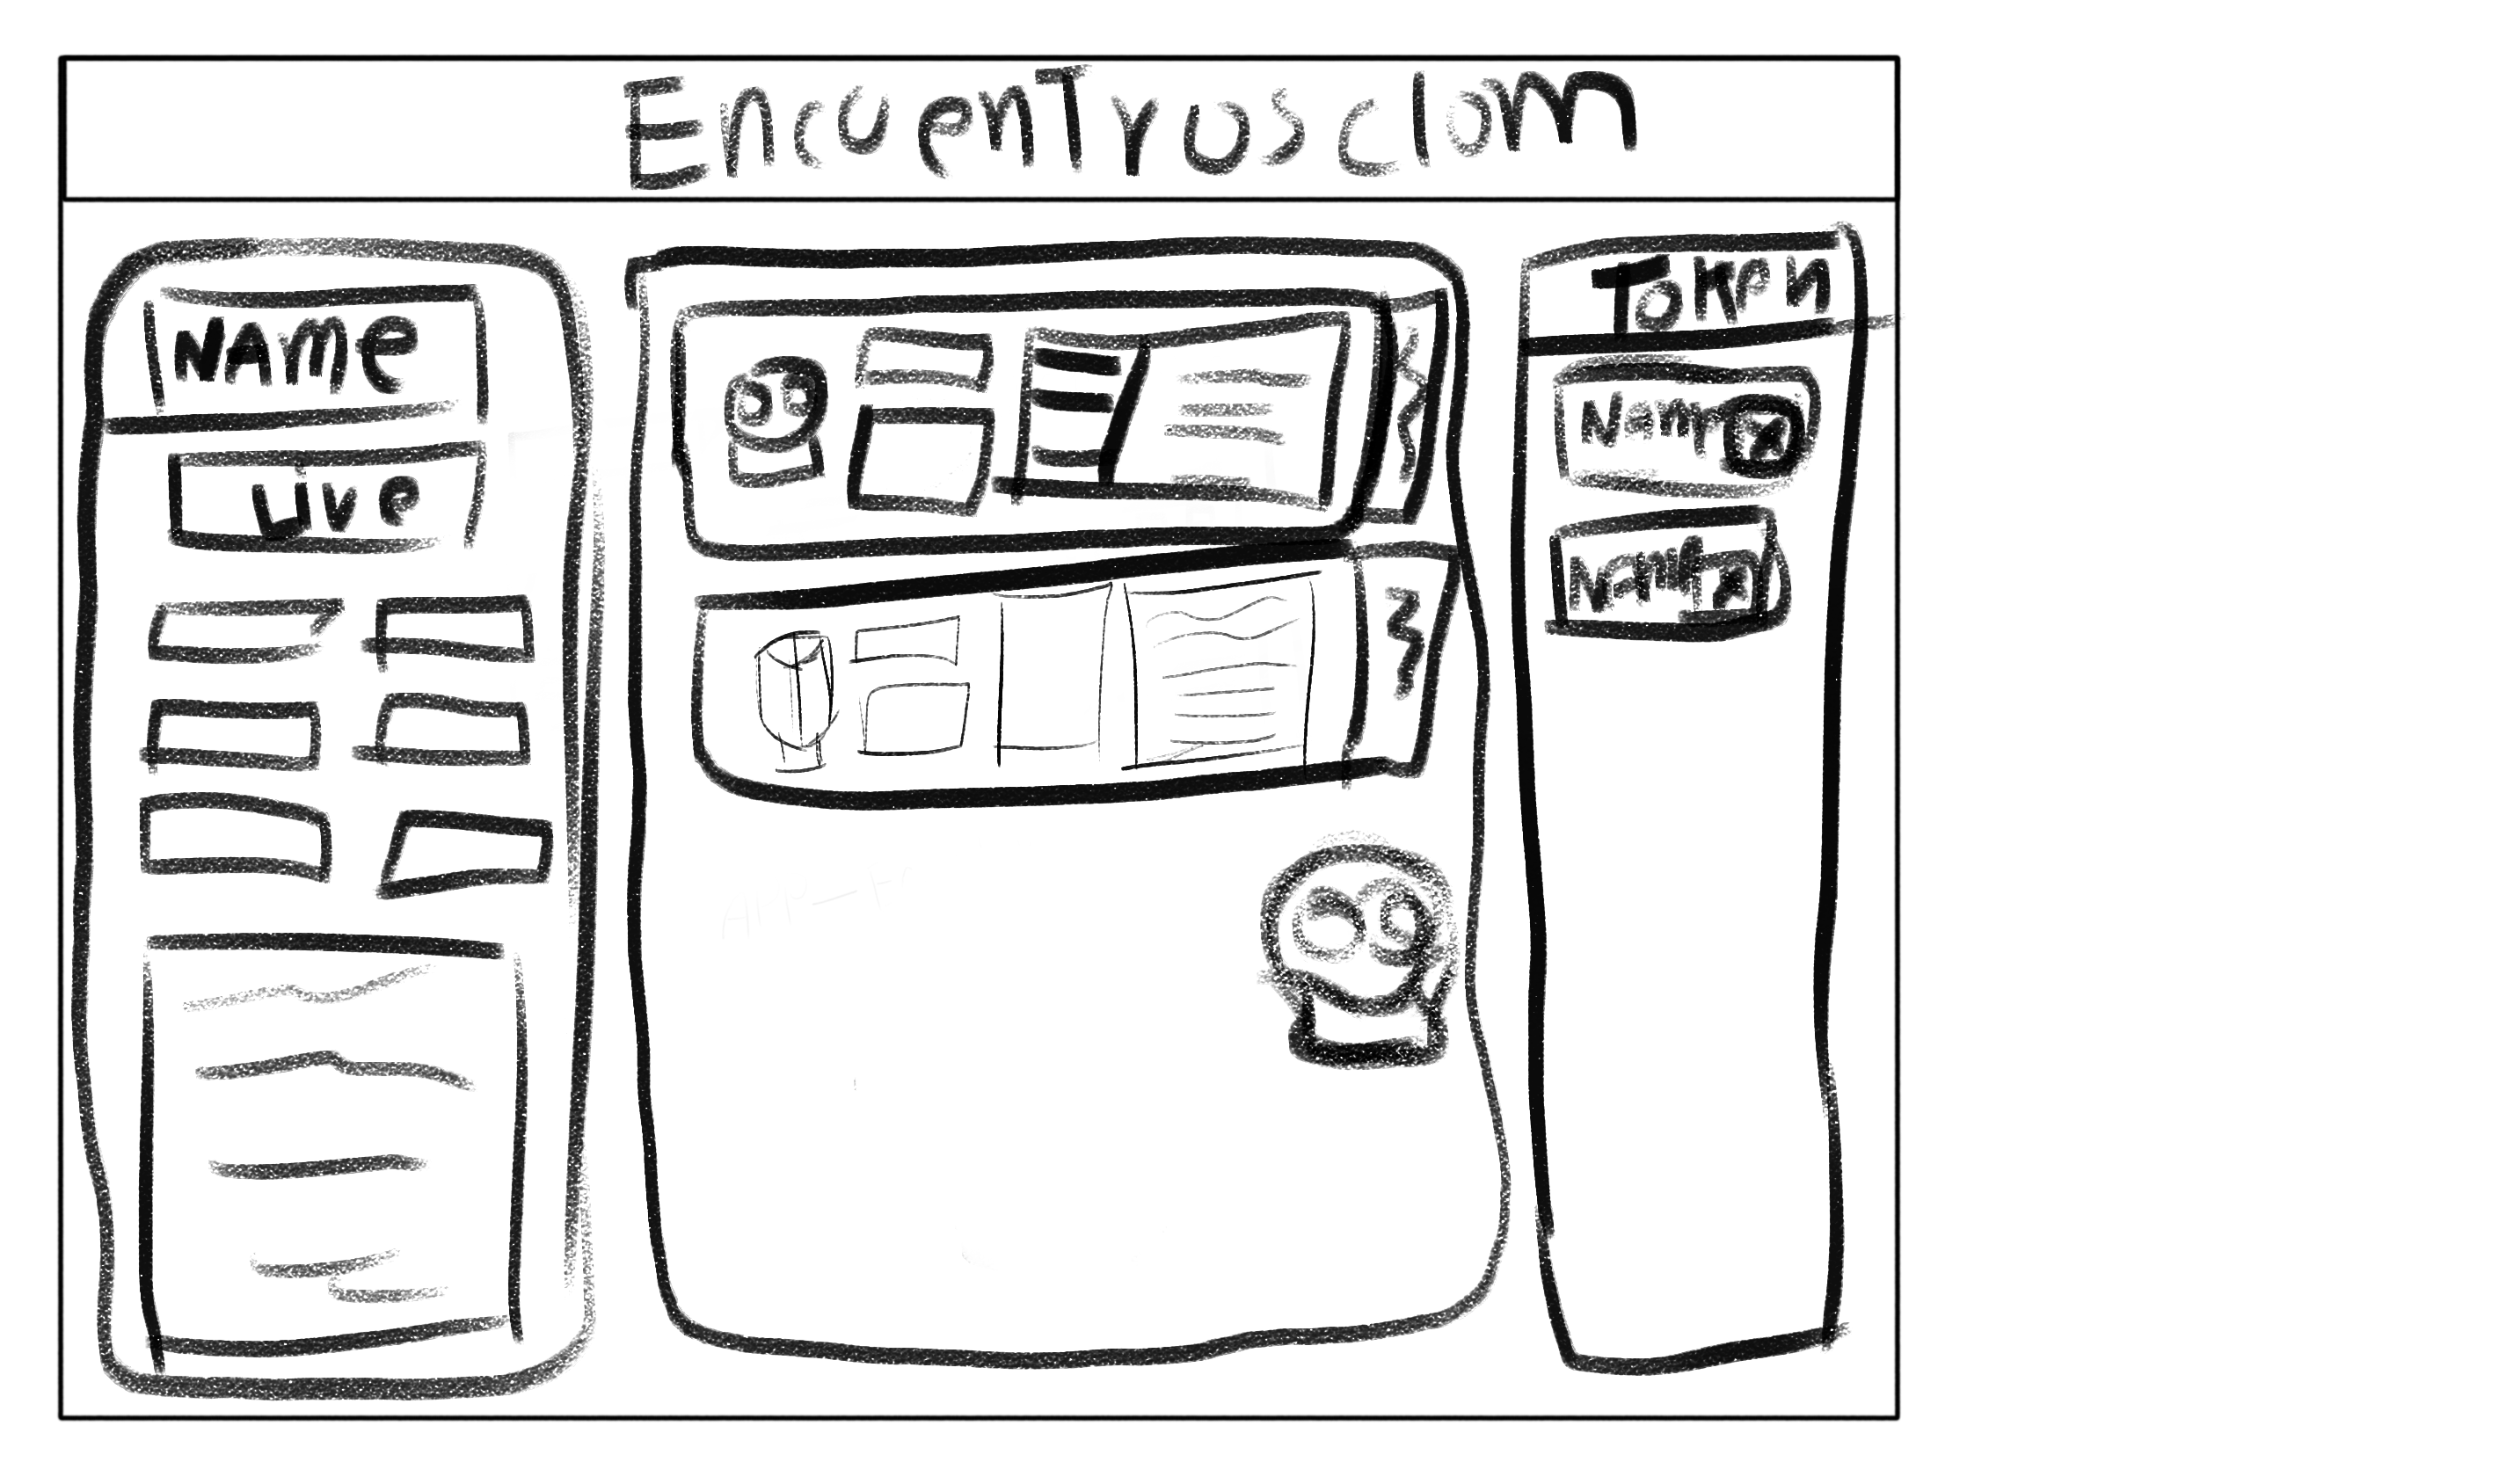 EncuenTros clom
NAme
Live
Token
Name X
Name X